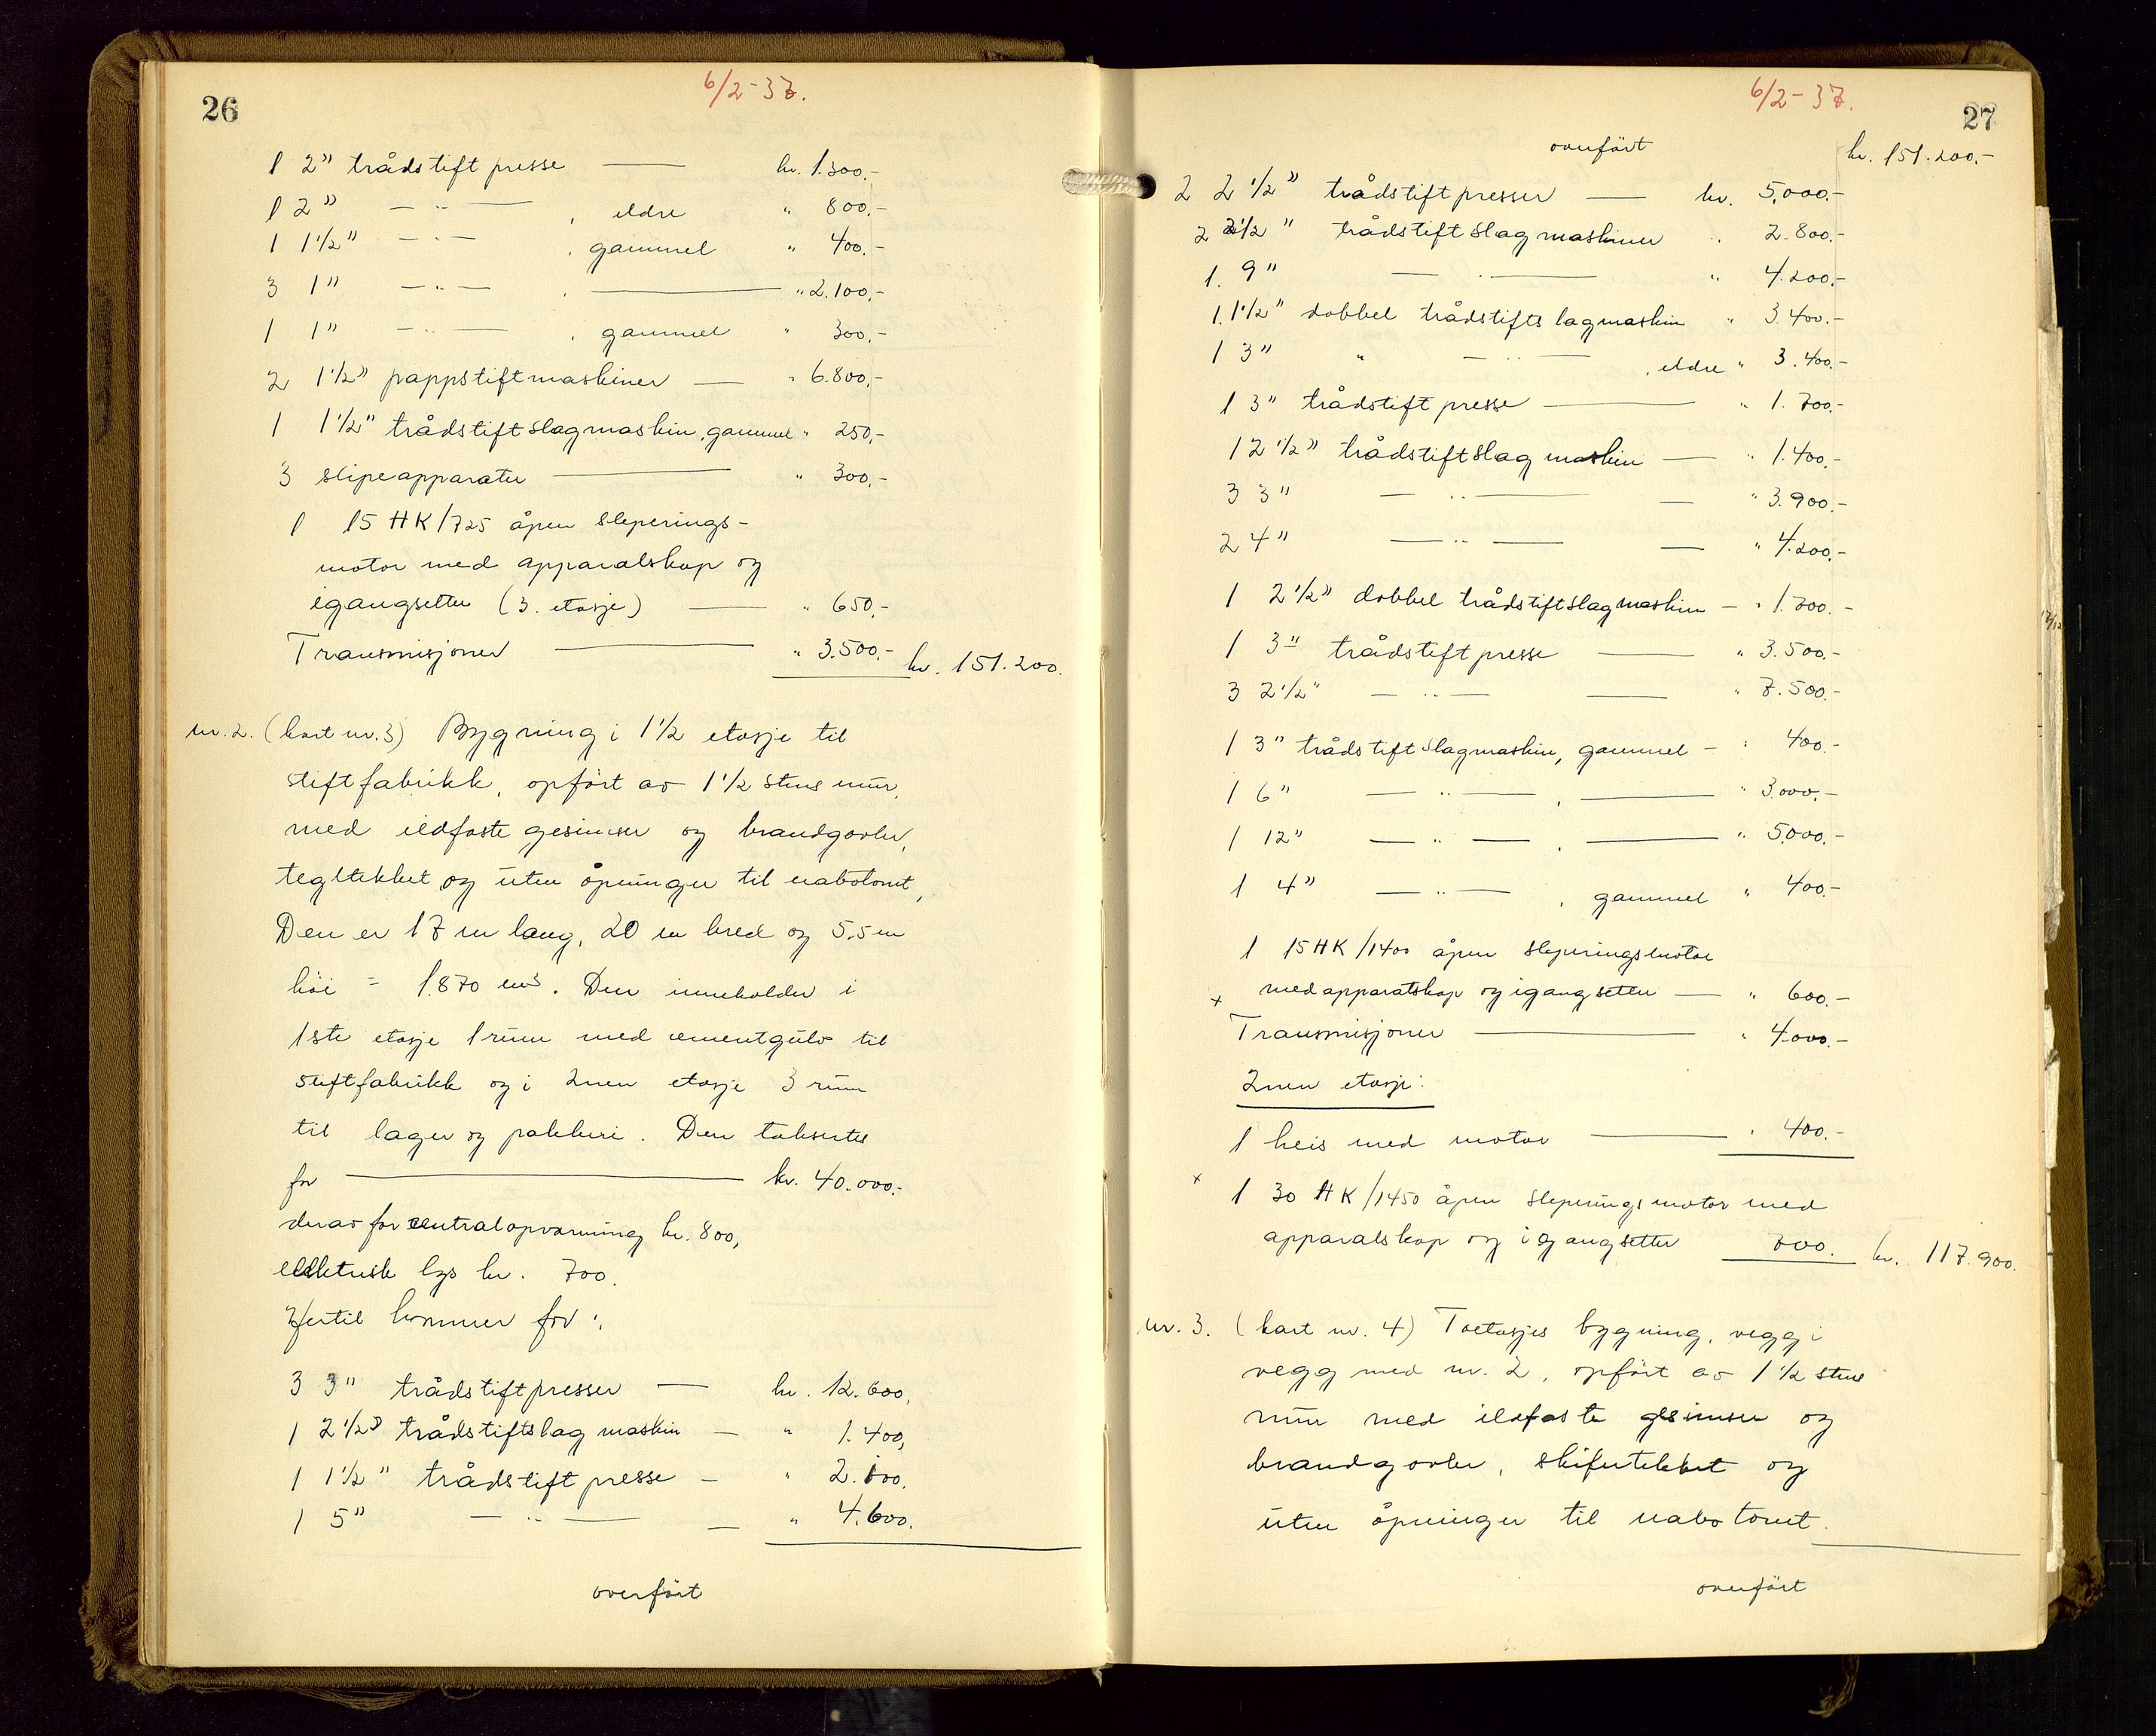 26
6/2-37.
1 2" trådstiftpresse — kr. 1.300,-
1 2" — " — , eldre " 800,-
1 1 1/2" — " — , gammel " 400,-
3 1" — " — , — " 2.100,-
1 1" — " — , gammel " 300,-
2 1 1/2" pappstiftmaskiner — " 6.800,-
1 1 1/2" trådstiftslagmaskin, gammel " 250,-
3 slipeapparater — " 300,-
1 15 HK/725 åpen sleperings-
motor med apparatskap og
igangsetter (3. etasje) — " 650,-
Transmisjoner — " 3.500,- kr. 151.200.
nr. 2. (kart nr. 3) Bygning i 1 1/2 etasje til
stiftfabrikk, opført av 1 1/2 stens mur,
med ildfaste gesimser og brandgavler,
tegltekket og uten åpninger til nabotomt,
Den er 17 m lang, 20 m bred og 5,5 m
höi = 1.870 m3. Den inneholder i
1ste etasje 1 rum med cementgulv til
stiftfabrikk og i 2nen etasje 3 rum
til lager og pakkeri. Den takseres
for — kr. 40.000,-
derav for centralopvarming kr. 800,
elektrisk lys kr. 700.
Hertil kommer for:
3 3" trådstiftpresser — kr. 12.600,
1 2 1/2" trådstiftslagmaskin — " 1.400,
1 1 1/2" trådstiftpresse — "
1 5" — " — — " 4.600.
overført
6/2-37.
27
overført kr. 151.200,-
2 2 1/2" trådstiftpresser — kr. 5.000.-
2 2 1/2" trådstiftslagmaskiner " 2.800.-
1. 9" — " — " 4.200.-
1. 1 1/2" dobbel trådstiftslagmaskin " 3.400.-
1 3" " — " — , eldre " 3.400.-
1 3" trådstiftpresse — " 1.700.-
1 2 1/2" trådstiftslagmaskin — " 1.400.-
3 3" — " — — " 3.900.-
2 4" — " — — " 4.200.-
1 2 1/2" dobbel trådstiftslagmaskin — " 1.700.-
1 3" trådstiftpresse — " 3.500.-
3 2 1/2" — " — — " 7.500.-
1 3" trådstiftslagmaskin, gammel — " 400.-
1 6" — " — , — " 3.000.-
1 12" — " — , — " 5.000.-
1 4" — " — , gammel " 400.-
1 15 HK/1400 åpen sleperingsmotor
x med apparatskap og igangsetter — " 600.-
Transmisjoner — " 4.000.-
2nen etasje:
1 heis med motor — " 400.-
x 1 30 HK/1450 åpen sleperingsmotor med
apparatskap og igangsetter kr. 117.900.
nr. 3. (kart nr. 4) Toetasjes bygning, vegg i
vegg med nr. 2, opført av 1 1/2 stens
mur med ildfaste gesimser og
brandgavler, skifertekket og
uten åpninger til nabotomt.
overført